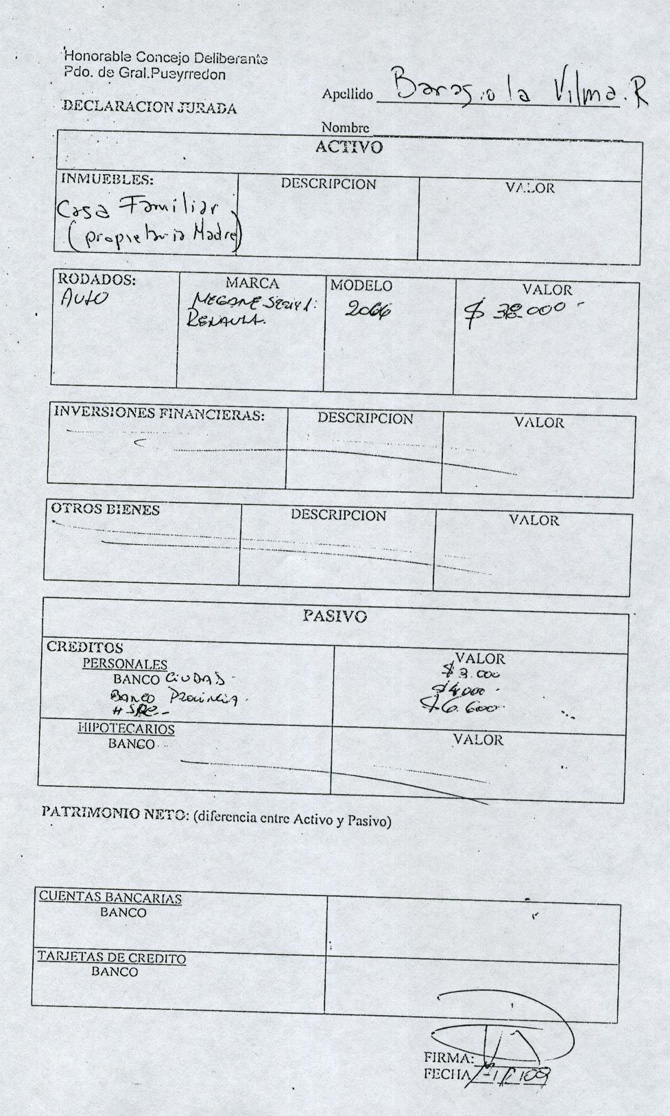 Honorable Concejo Deliberante
Pdo. de Gral.Pueyrredon
Apellido Baragiola Vilma. R
DECLARACION JURADA
Nombre
ACTIVO
INMUEBLES: DESCRIPCION VALOR
Casa Familiar
(propietaria Madre)
RODADOS: MARCA MODELO VALOR
Auto MEGANE 2006 $ 38.000
RENAULT.
INVERSIONES FINANCIERAS: DESCRIPCION VALOR
OTROS BIENES DESCRIPCION VALOR
PASIVO
CREDITOS
PERSONALES VALOR
BANCO CIUDAD $3.000
Banco Provincia $4000
HSBC $6.600
HIPOTECARIOS
BANCO VALOR
PATRIMONIO NETO: (diferencia entre Activo y Pasivo)
CUENTAS BANCARIAS
BANCO
TARJETAS DE CREDITO
BANCO
FIRMA:
FECHA